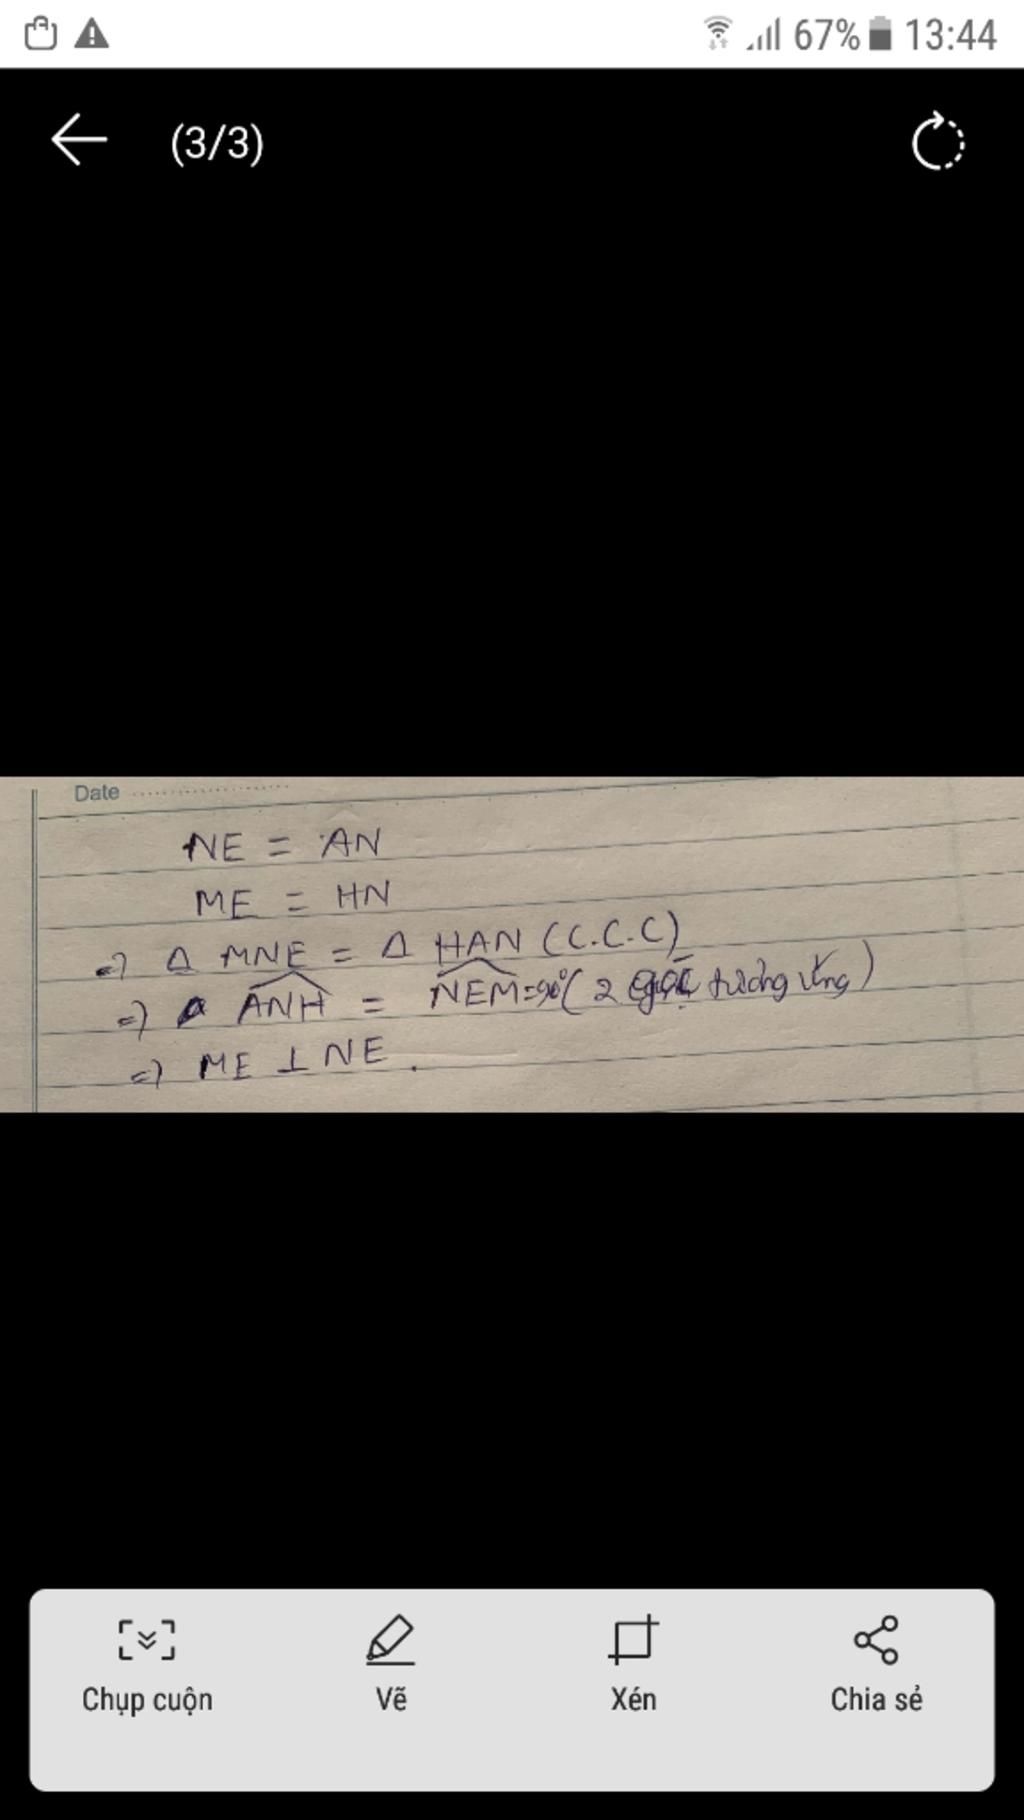 67% 13:44
(3/3)
Date
NE = AN
ME = HN
=> Δ MNE = Δ HAN (C.C.C)
=> ANH = NEM = 90° ( 2 góc tương ứng )
=> ME ⊥ NE .
Chụp cuộn Vẽ Xén Chia sẻ